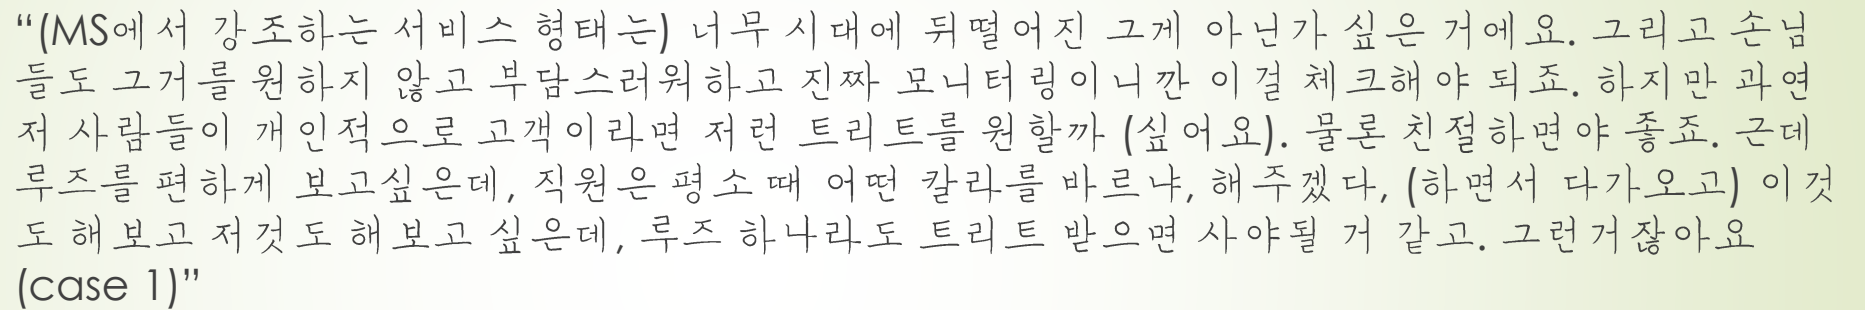 “(MS에서 강조하는 서비스 형태는) 너무 시대에 뒤떨어진 그게 아닌가 싶은 거에요. 그리고 손님
들도 그거를 원하지 않고 부담스러워하고 진짜 모니터링이니깐 이걸 체크해야 되죠. 하지만 과연
저 사람들이 개인적으로 고객이라면 저런 트리트를 원할까 (싶어요). 물론 친절하면야 좋죠. 근데
루즈를 편하게 보고싶은데, 직원은 평소때 어떤 칼라를 바르냐, 해주겠다, (하면서 다가오고) 이것
도 해보고 저것도 해보고 싶은데, 루즈 하나라도 트리트 받으면 사야될 거 같고. 그런거잖아요
(case 1)”